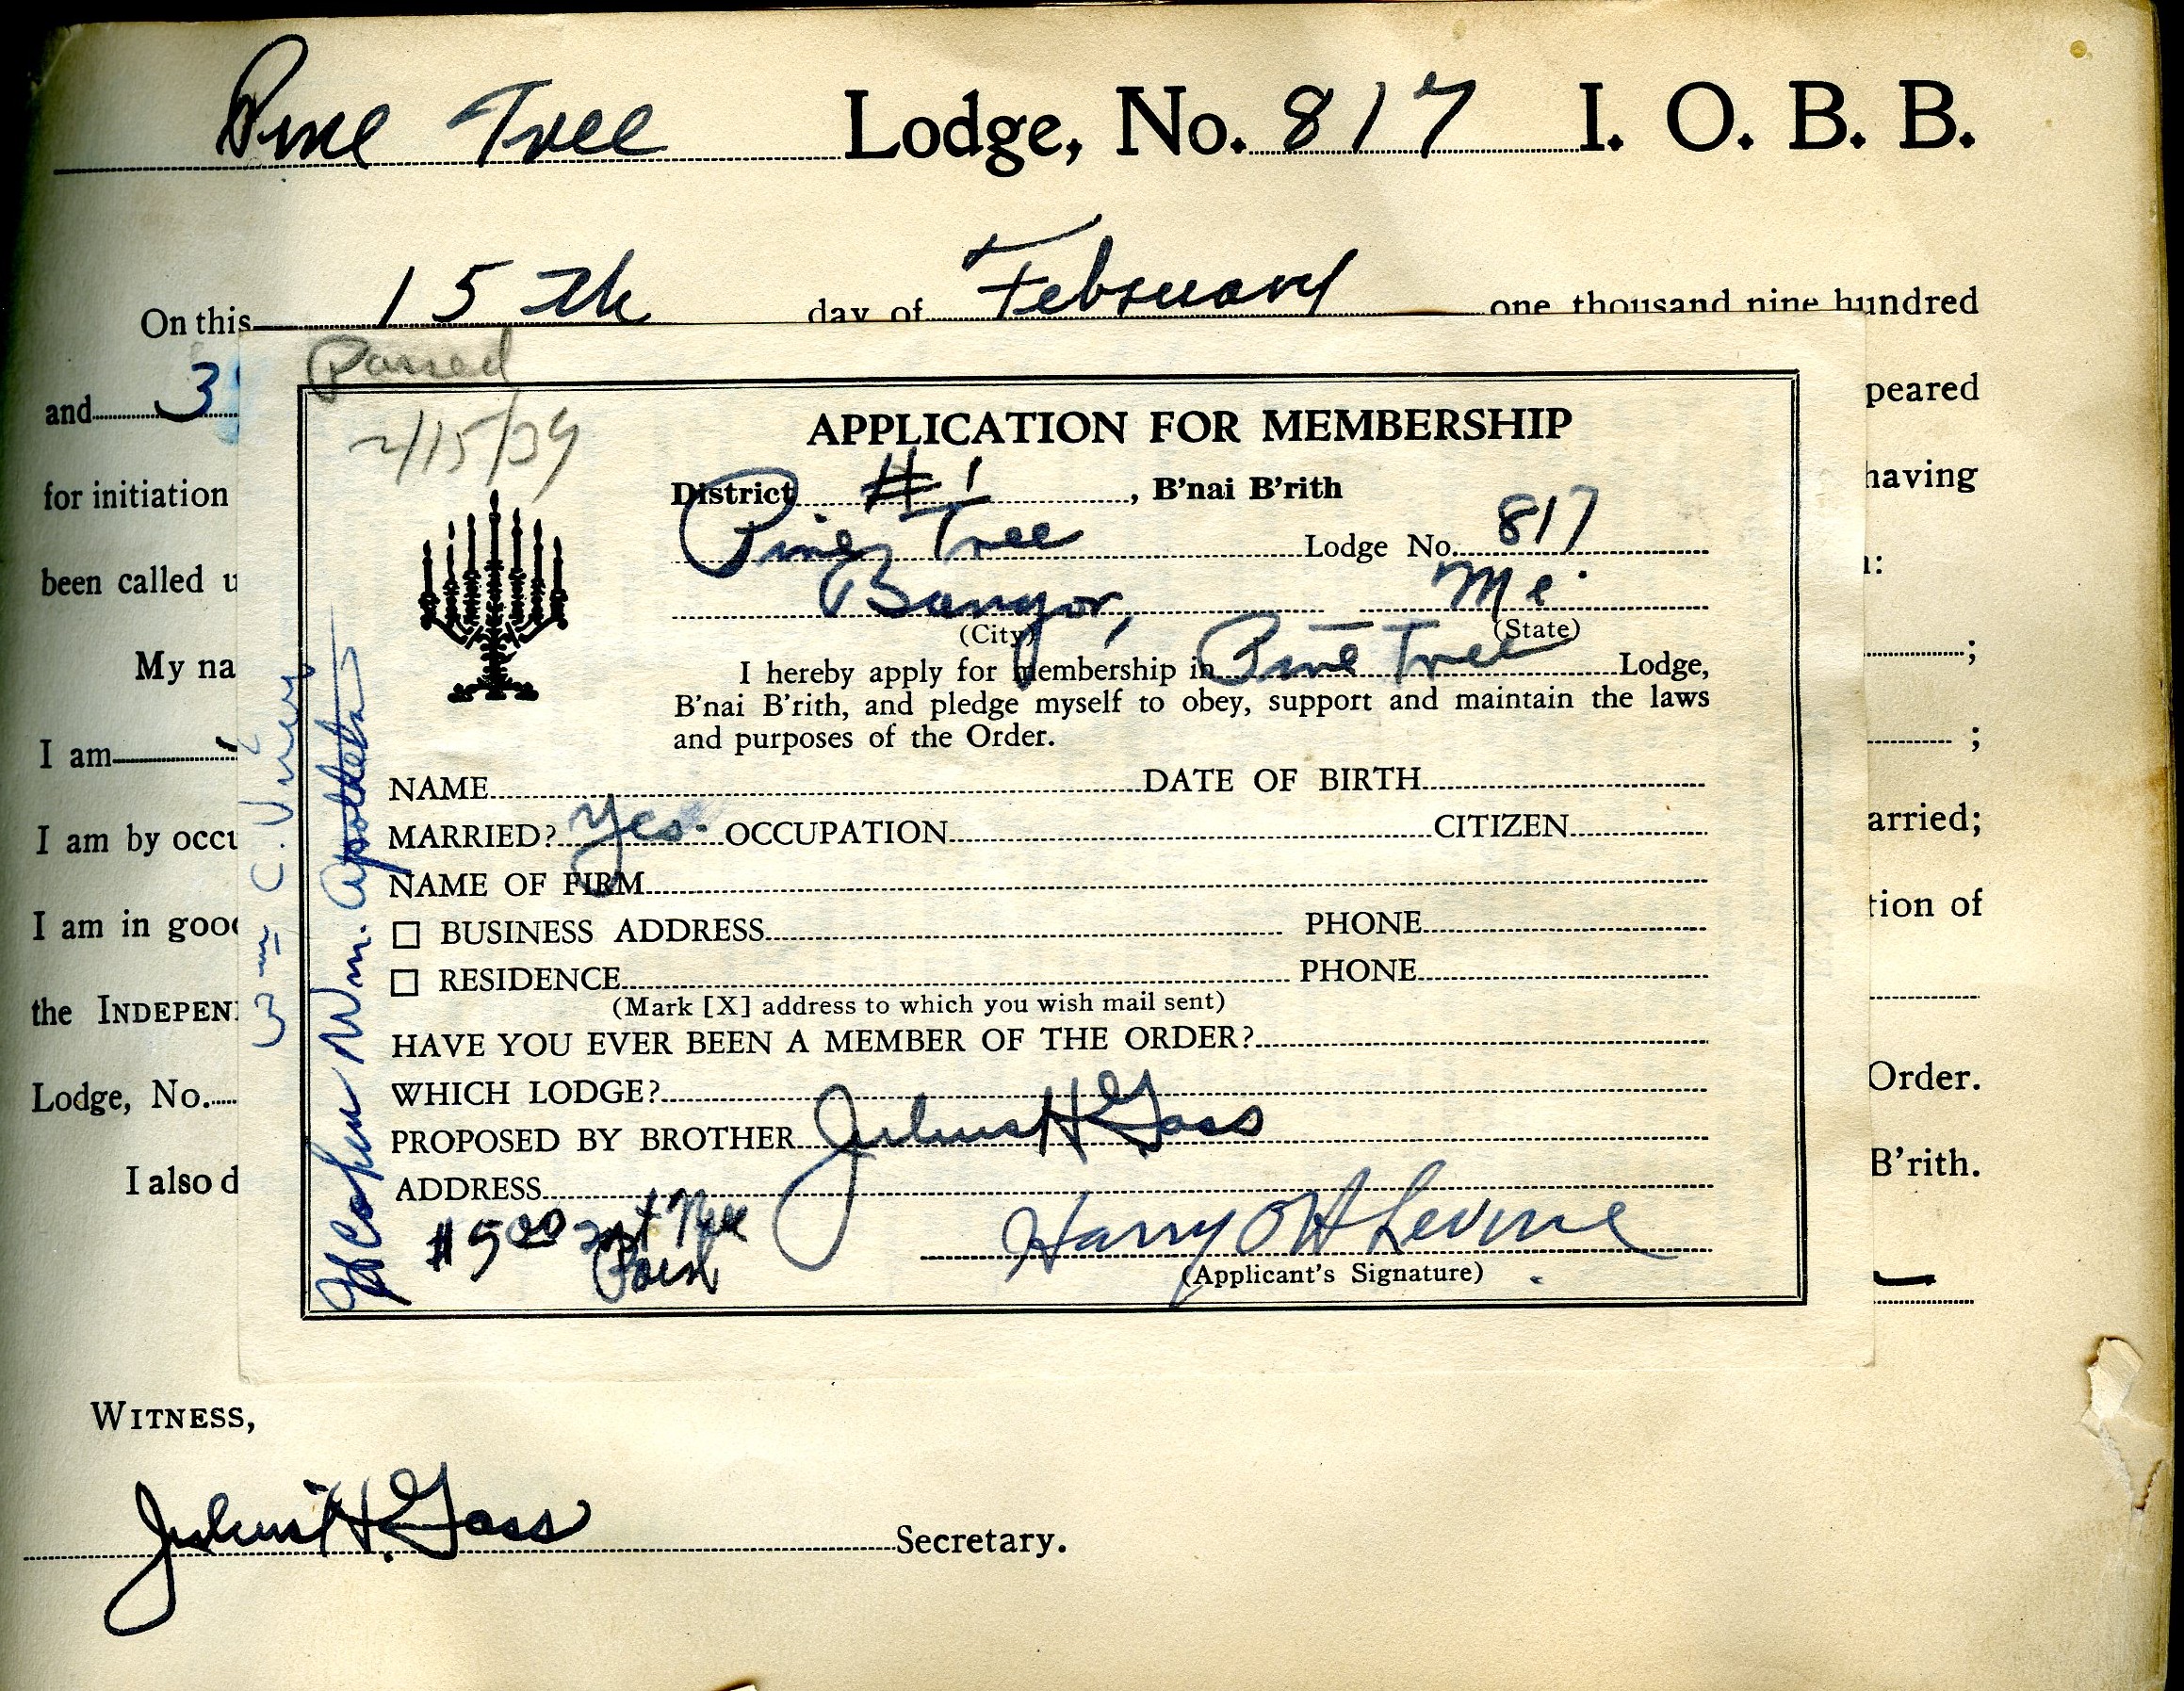 Pine Tree Lodge, No. 817 I. O. B. B.
On this 15th day of February one thousand nine hundred
and 3 peared
for initiation having
been called u n:
My na ;
I am ;
I am by occu arried;
I am in good tion of
the INDEPEN
Lodge, No. Order.
I also d B'rith.
Passed
2/15/39
APPLICATION FOR MEMBERSHIP
District #1, B'nai B'rith
Pine Tree Lodge No. 817
Bangor, Me.
(City) (State)
I hereby apply for membership in Pine Tree Lodge,
B'nai B'rith, and pledge myself to obey, support and maintain the laws
and purposes of the Order.
NAME DATE OF BIRTH
MARRIED? Yes. OCCUPATION CITIZEN
NAME OF FIRM
☐ BUSINESS ADDRESS PHONE
☐ RESIDENCE PHONE
(Mark [X] address to which you wish mail sent)
HAVE YOU EVER BEEN A MEMBER OF THE ORDER?
WHICH LODGE?
PROPOSED BY BROTHER Julius H Gass
ADDRESS
$5.00 Paid
Harry O H Levine
(Applicant's Signature)
Cohen Wm.
WITNESS,
Julius H. Gass Secretary.